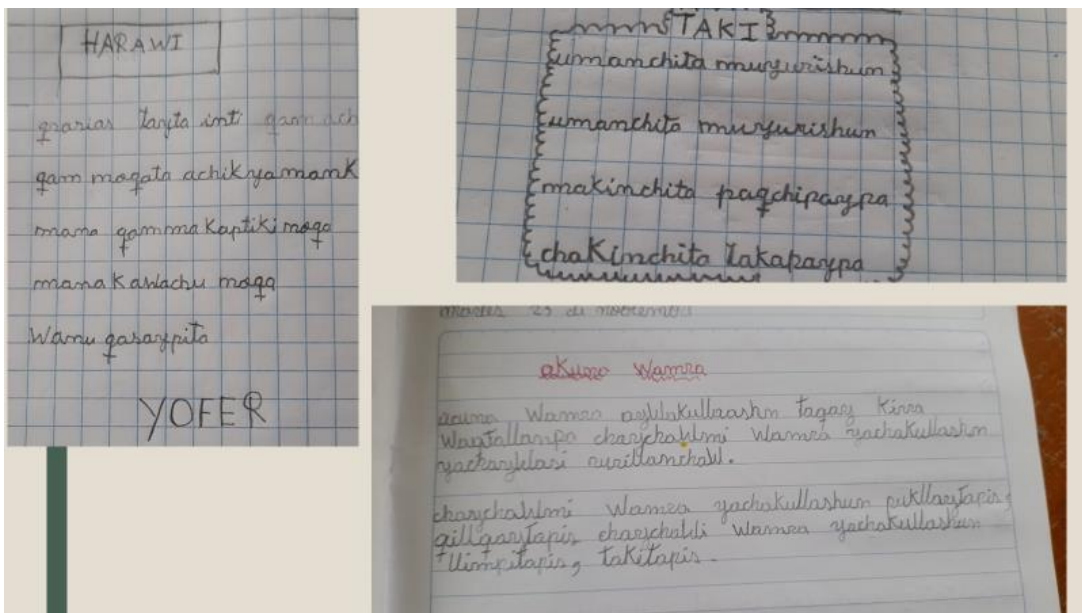 HARAWI
grasias tayta inti qam ach
qam maqata achikyamank
mana qamma kaptiki maqa
mana kawachu maqa
wanu qasaypita
YOFER
TAKI
umanchita muyurishun
umanchita muyurishun
makinchita paqchipaypa
chakinchita takapaypa
martes 23 de noviembre
akuna wamra
acuna wamra ayllakullaashn taqay kinra
chaychawmi wamra yachakullashn
chaychawmi wamra yachakullashun pukllaytapis,
qillqaytapis wamra yachakullashun
llimpitapis, takitapis.